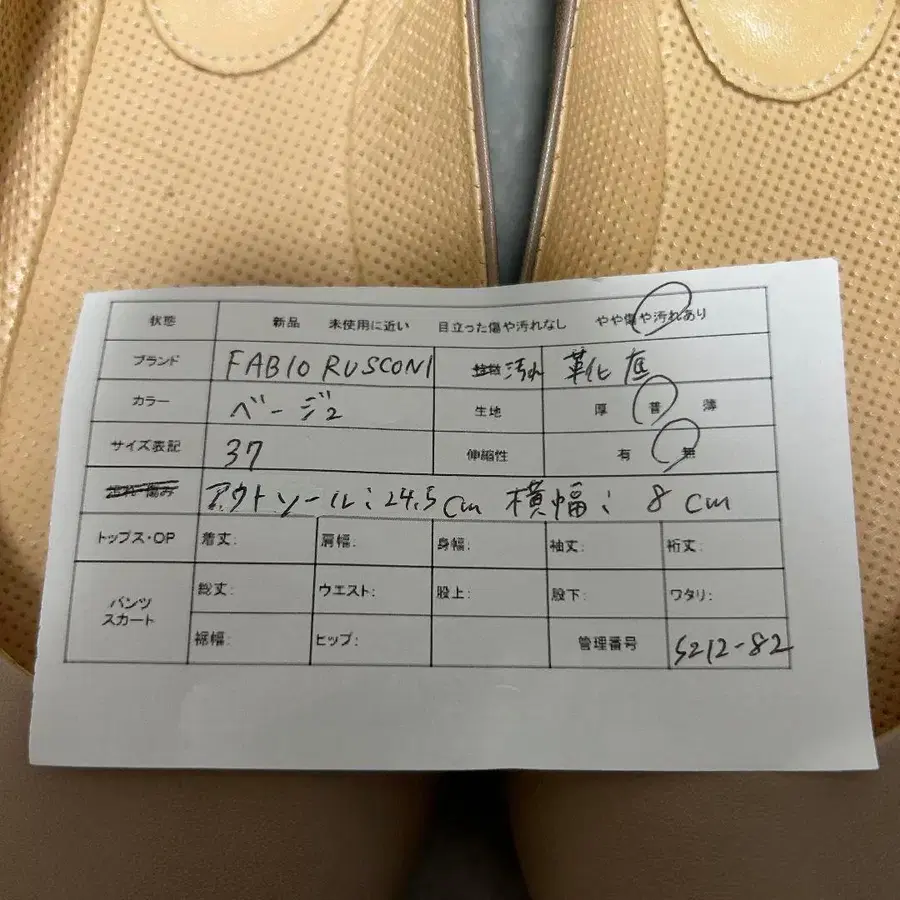 状態 新品 未使用に近い 目立った傷や汚れなし やや傷や汚れあり
ブランド FABIO RUSCONI 汚れ 靴底
カラー ベージュ 生地 厚 普 薄
サイズ表記 37 伸縮性 有 無
アウトソール:24.5cm 横幅:8cm
トップス・OP 着丈: 肩幅: 身幅: 袖丈: 裄丈:
パンツ スカート 総丈: ウエスト: 股上: 股下: ワタリ:
裾幅: ヒップ: 管理番号 S212-82